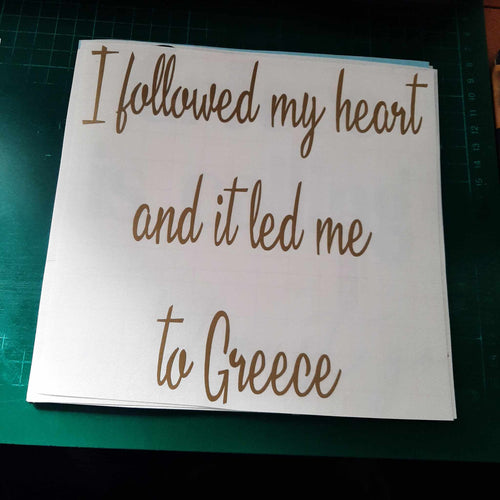 I followed my heart
and it led me
to Greece